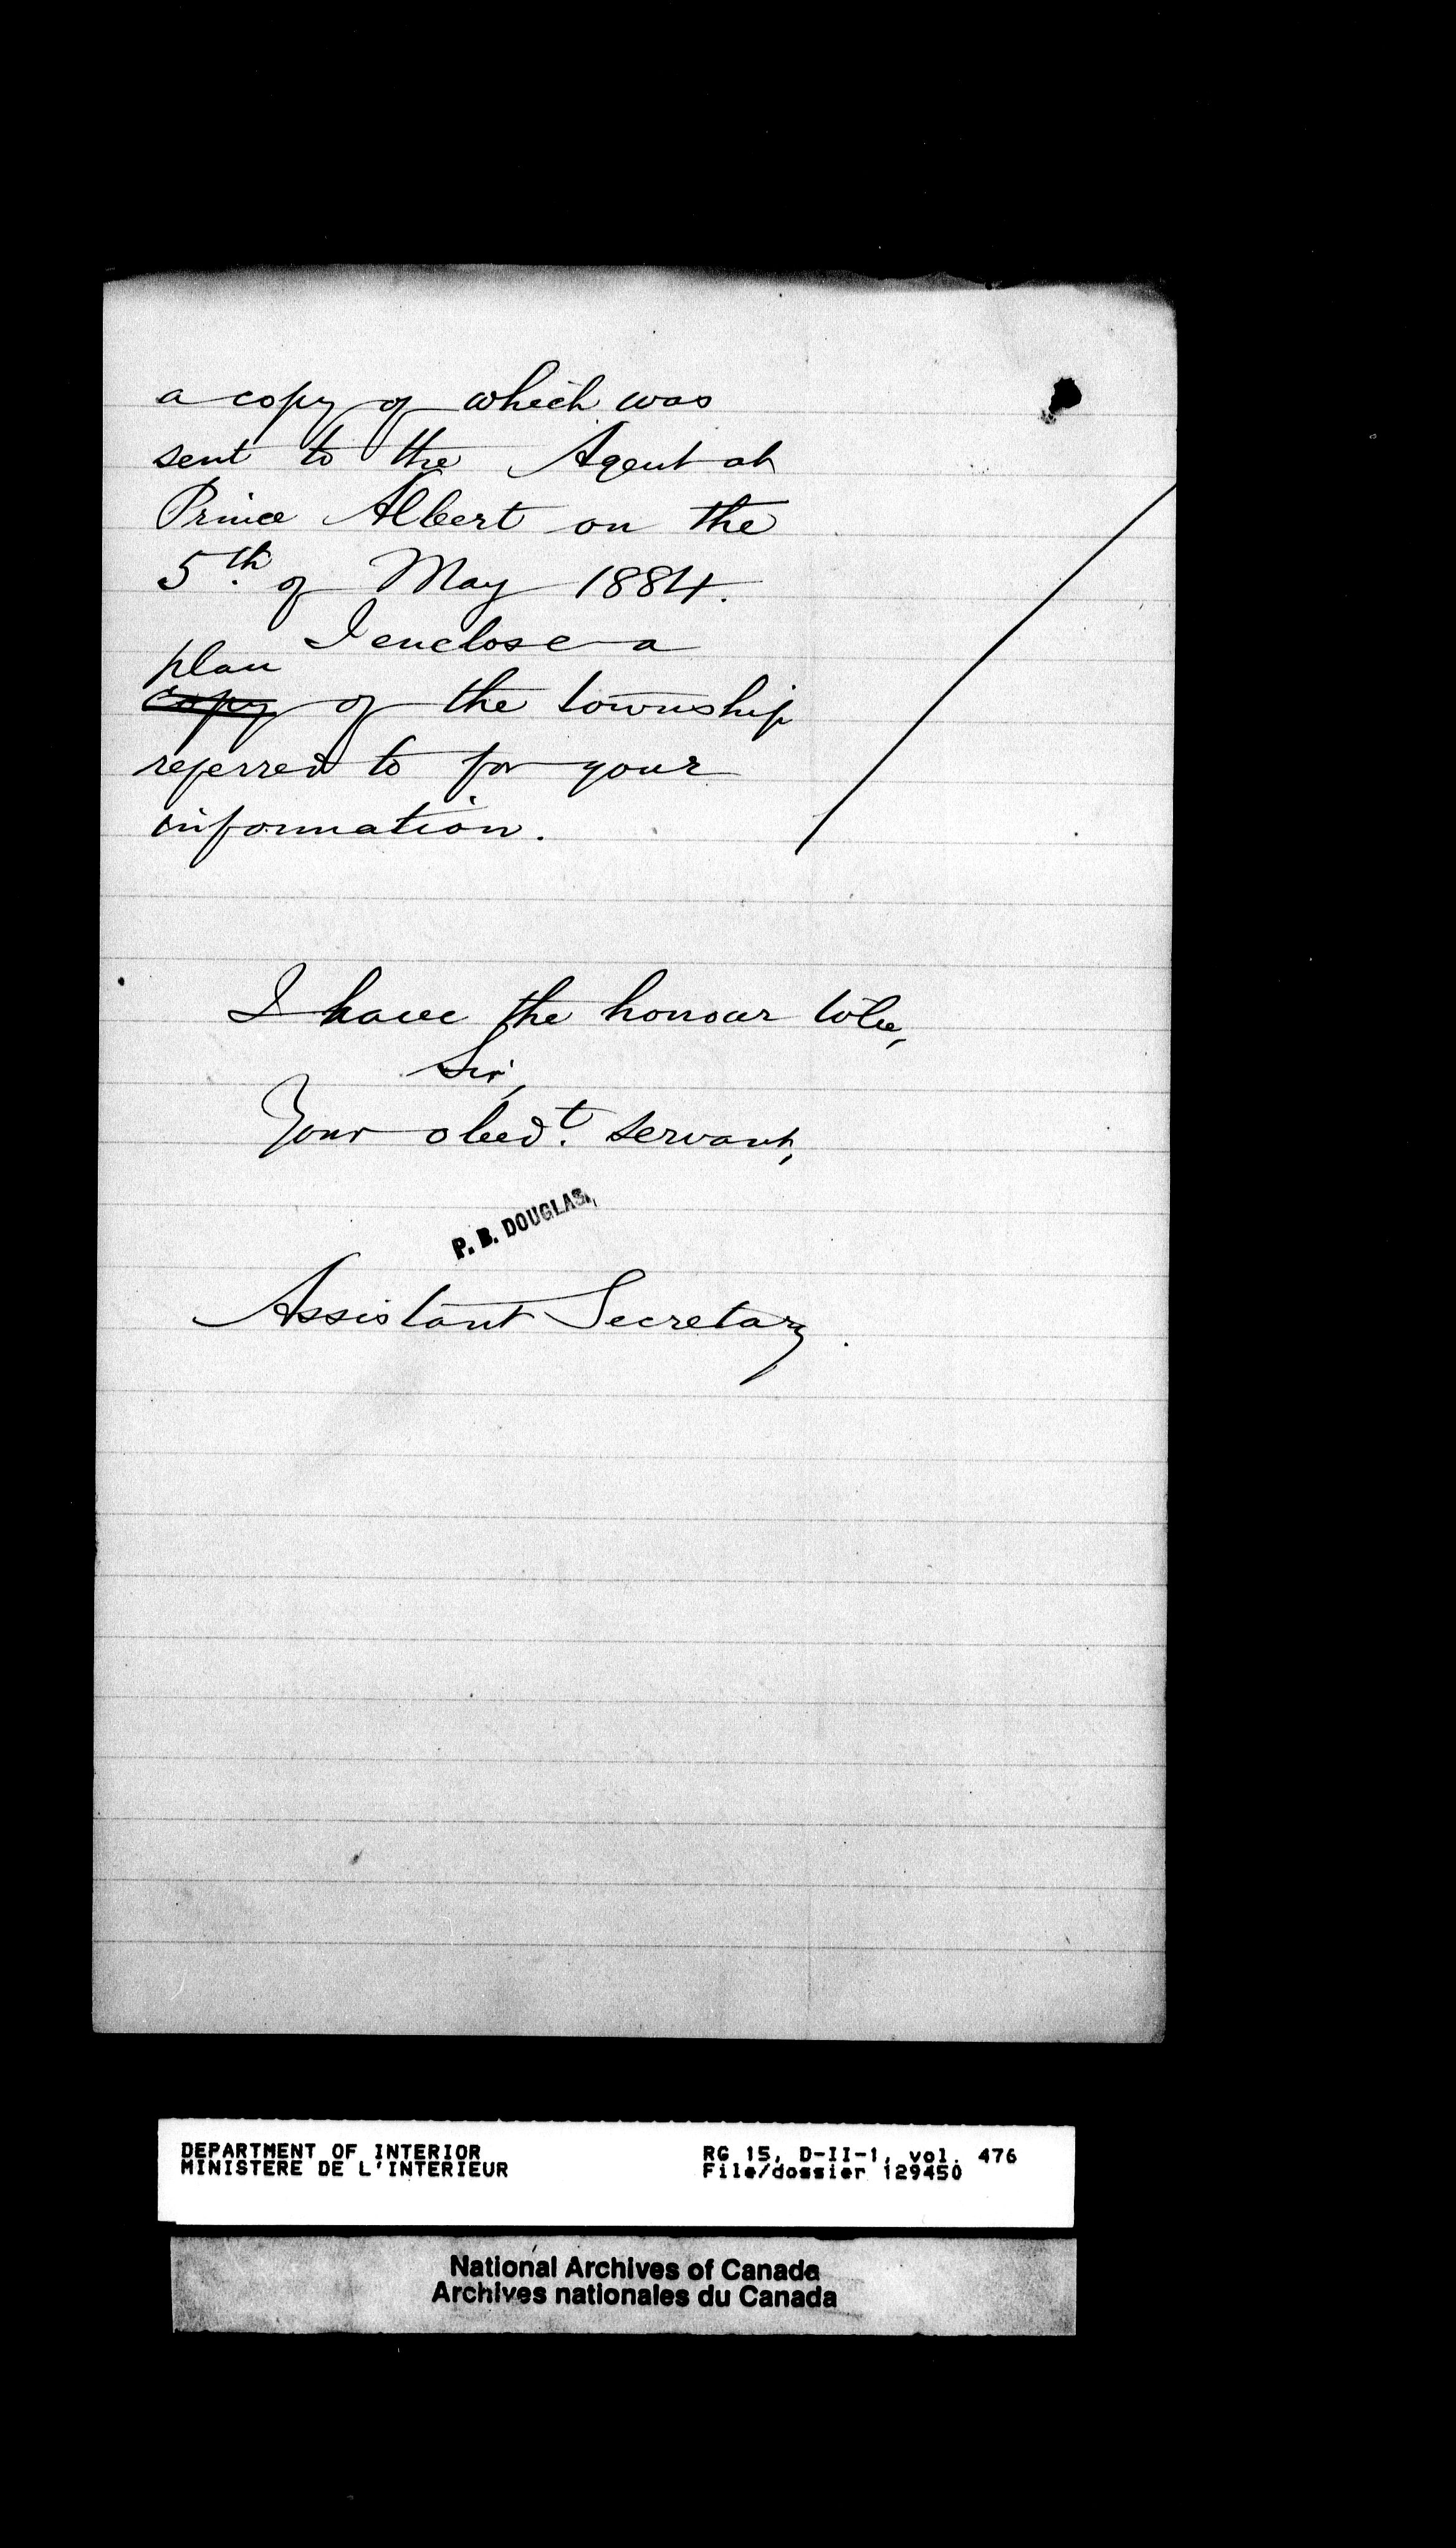 a copy of which was
sent to the Agent at
Prince Albert on the
5th. of May 1884.
I enclose a
plan
copy of the township
referred to for your
information.
I have the honour to be,
Sir,
Your obedt. servant,
P. B. DOUGLAS,
Assistant Secretary.
DEPARTMENT OF INTERIOR
MINISTERE DE L'INTERIEUR
RG 15, D-II-1, vol. 476
File/dossier 129450
National Archives of Canada
Archives nationales du Canada